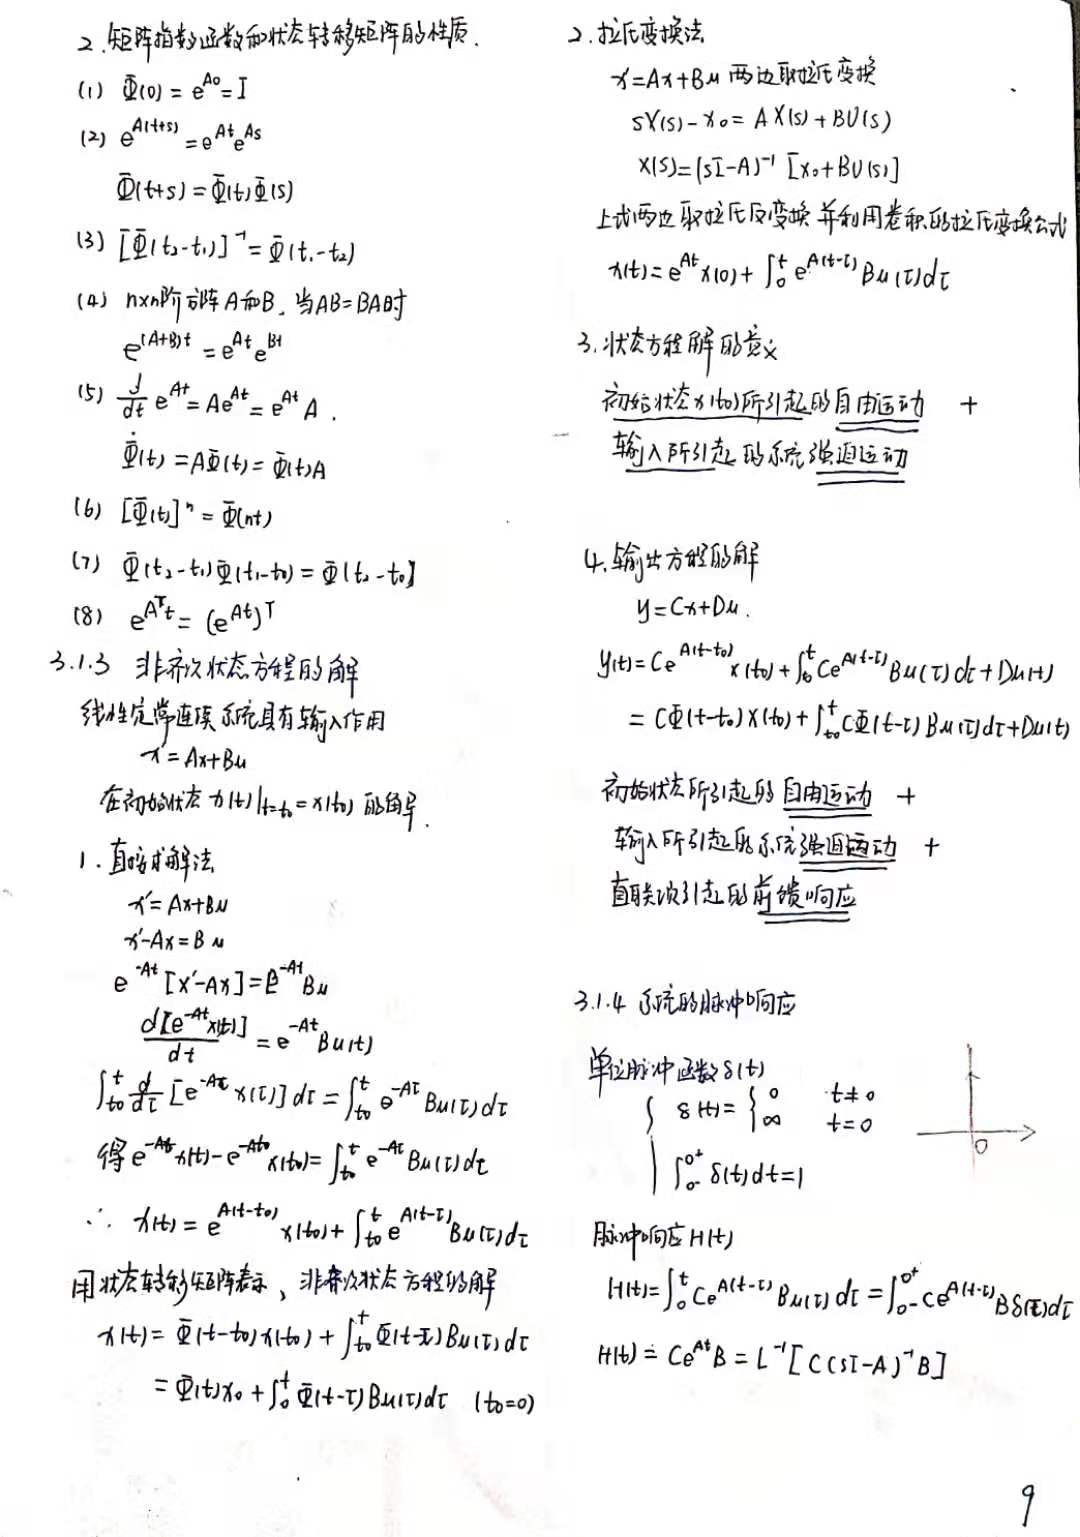 2.矩阵指数函数和状态转移矩阵的性质.
(1) Φ(0) = e^{A0} = I
(2) e^{A(t+s)} = e^{At}e^{As}
Φ(t+s) = Φ(t)Φ(s)
(3) [Φ(t₂-t₁)]^{-1} = Φ(t₁-t₂)
(4) n×n阶方阵A和B, 当AB=BA时
e^{(A+B)t} = e^{At}e^{Bt}
(5) \frac{d}{dt}e^{At} = Ae^{At} = e^{At}A.
\dot{Φ}(t) = AΦ(t) = Φ(t)A
(6) [Φ(t)]^n = Φ(nt)
(7) Φ(t₂-t₁)Φ(t₁-t₀) = Φ(t₂-t₀)
(8) e^{A^T t} = (e^{At})^T
3.1.3 非齐次状态方程的解
线性定常连续系统具有输入作用
x' = Ax+Bu
在初始状态 x(t)|_{t=t₀} = x(t₀) 的解.
1.直接求解法
x' = Ax+Bu
x'-Ax = Bu
e^{-At}[x'-Ax] = e^{-At}Bu
\frac{d[e^{-At}x(t)]}{dt} = e^{-At}Bu(t)
∫_{t0}^{t} \frac{d}{dτ}[e^{-Aτ}x(τ)]dτ = ∫_{t0}^{t} e^{-Aτ}Bu(τ)dτ
得 e^{-At}x(t) - e^{-At₀}x(t₀) = ∫_{t0}^{t} e^{-Aτ}Bu(τ)dτ
∴ x(t) = e^{A(t-t₀)}x(t₀) + ∫_{t0}^{t} e^{A(t-τ)}Bu(τ)dτ
用状态转移矩阵表示, 非齐次状态方程的解
x(t) = Φ(t-t₀)x(t₀) + ∫_{t0}^{t} Φ(t-τ)Bu(τ)dτ
= Φ(t)x₀ + ∫_0^t Φ(t-τ)Bu(τ)dτ (t₀=0)
2.拉氏变换法
x' = Ax+Bu 两边取拉氏变换
sX(s) - x₀ = AX(s) + BU(s)
X(s) = (sI-A)^{-1}[x₀+BU(s)]
上式两边取拉氏反变换并利用卷积的拉氏变换公式
x(t) = e^{At}x(0) + ∫_0^t e^{A(t-τ)}Bu(τ)dτ
3.状态方程解的意义
初始状态x(t₀)所引起的自由运动 +
输入所引起的系统强迫运动
4.输出方程的解
y = Cx+Du.
y(t) = Ce^{A(t-t₀)}x(t₀) + ∫_{t0}^{t} Ce^{A(t-τ)}Bu(τ)dτ + Du(t)
= CΦ(t-t₀)x(t₀) + ∫_{t0}^{t} CΦ(t-τ)Bu(τ)dτ + Du(t)
初始状态所引起的自由运动 +
输入所引起的系统强迫运动 +
直联项引起的前馈响应
3.1.4 系统的脉冲响应
单位脉冲函数δ(t)
δ(t) = { 0 t≠0
∞ t=0
∫_{0-}^{0+} δ(t)dt = 1
0
脉冲响应H(t)
H(t) = ∫_0^t Ce^{A(t-τ)}Bu(τ)dτ = ∫_{0-}^{0+} Ce^{A(t-τ)}Bδ(τ)dτ
H(t) = Ce^{At}B = L^{-1}[C(sI-A)^{-1}B]
9